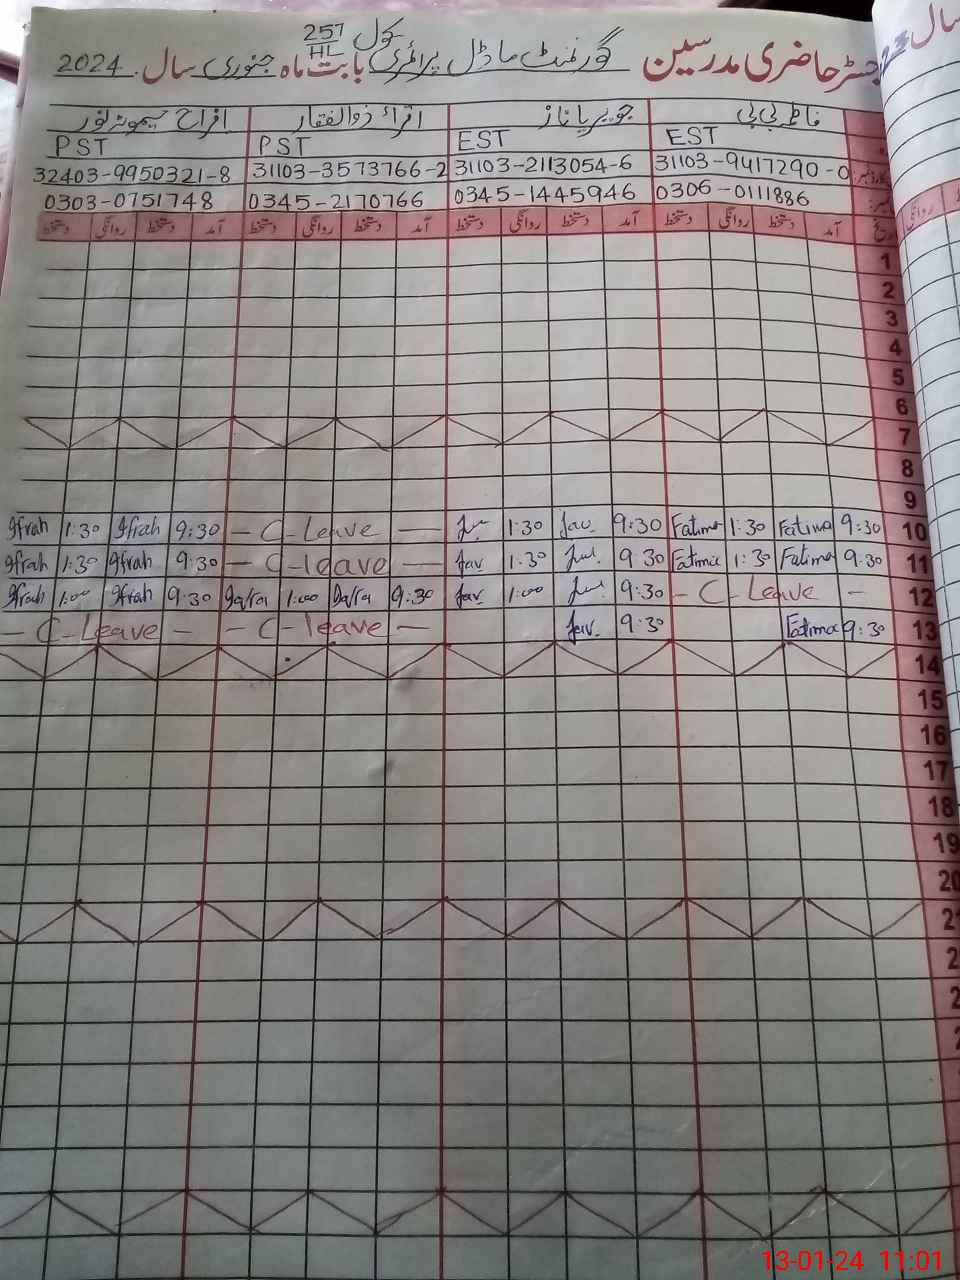 سکول 257/HL
رجسٹر حاضری مدرسین گورنمنٹ ماڈل پرائمری بابت ماہ جنوری سال 2024
فاطمہ بی بی جویریا ناز اقراء ذوالفقار افراح
EST EST PST PST
31103-9417290-0 31103-2113054-6 31103-3573766-2 32403-9950321-8
0306-0111886 0345-1445946 0345-2170766 0303-0751748
آمد دستخط روانگی دستخط آمد دستخط روانگی دستخط آمد دستخط روانگی دستخط آمد دستخط روانگی دستخط
1
2
3
4
5
6
7
8
9
10 9:30 Fatima 1:30 Fatima 9:30 Jav. 1:30 — C-Leave — 9:30 Ifrah 1:30 Ifrah
11 9:30 Fatima 1:30 Fatima 9:30 1:30 Jav — C-leave — 9:30 Ifrah 1:30 Ifrah
12 — C-Leave — 9:30 1:00 Jav. 9:30 1:00 9:30 Ifrah 1:00 Ifrah
13 9:30 Fatima 9:30 Jav. — C-leave — — C-Leave —
14
15
16
17
18
19
20
13-01-24 11:01